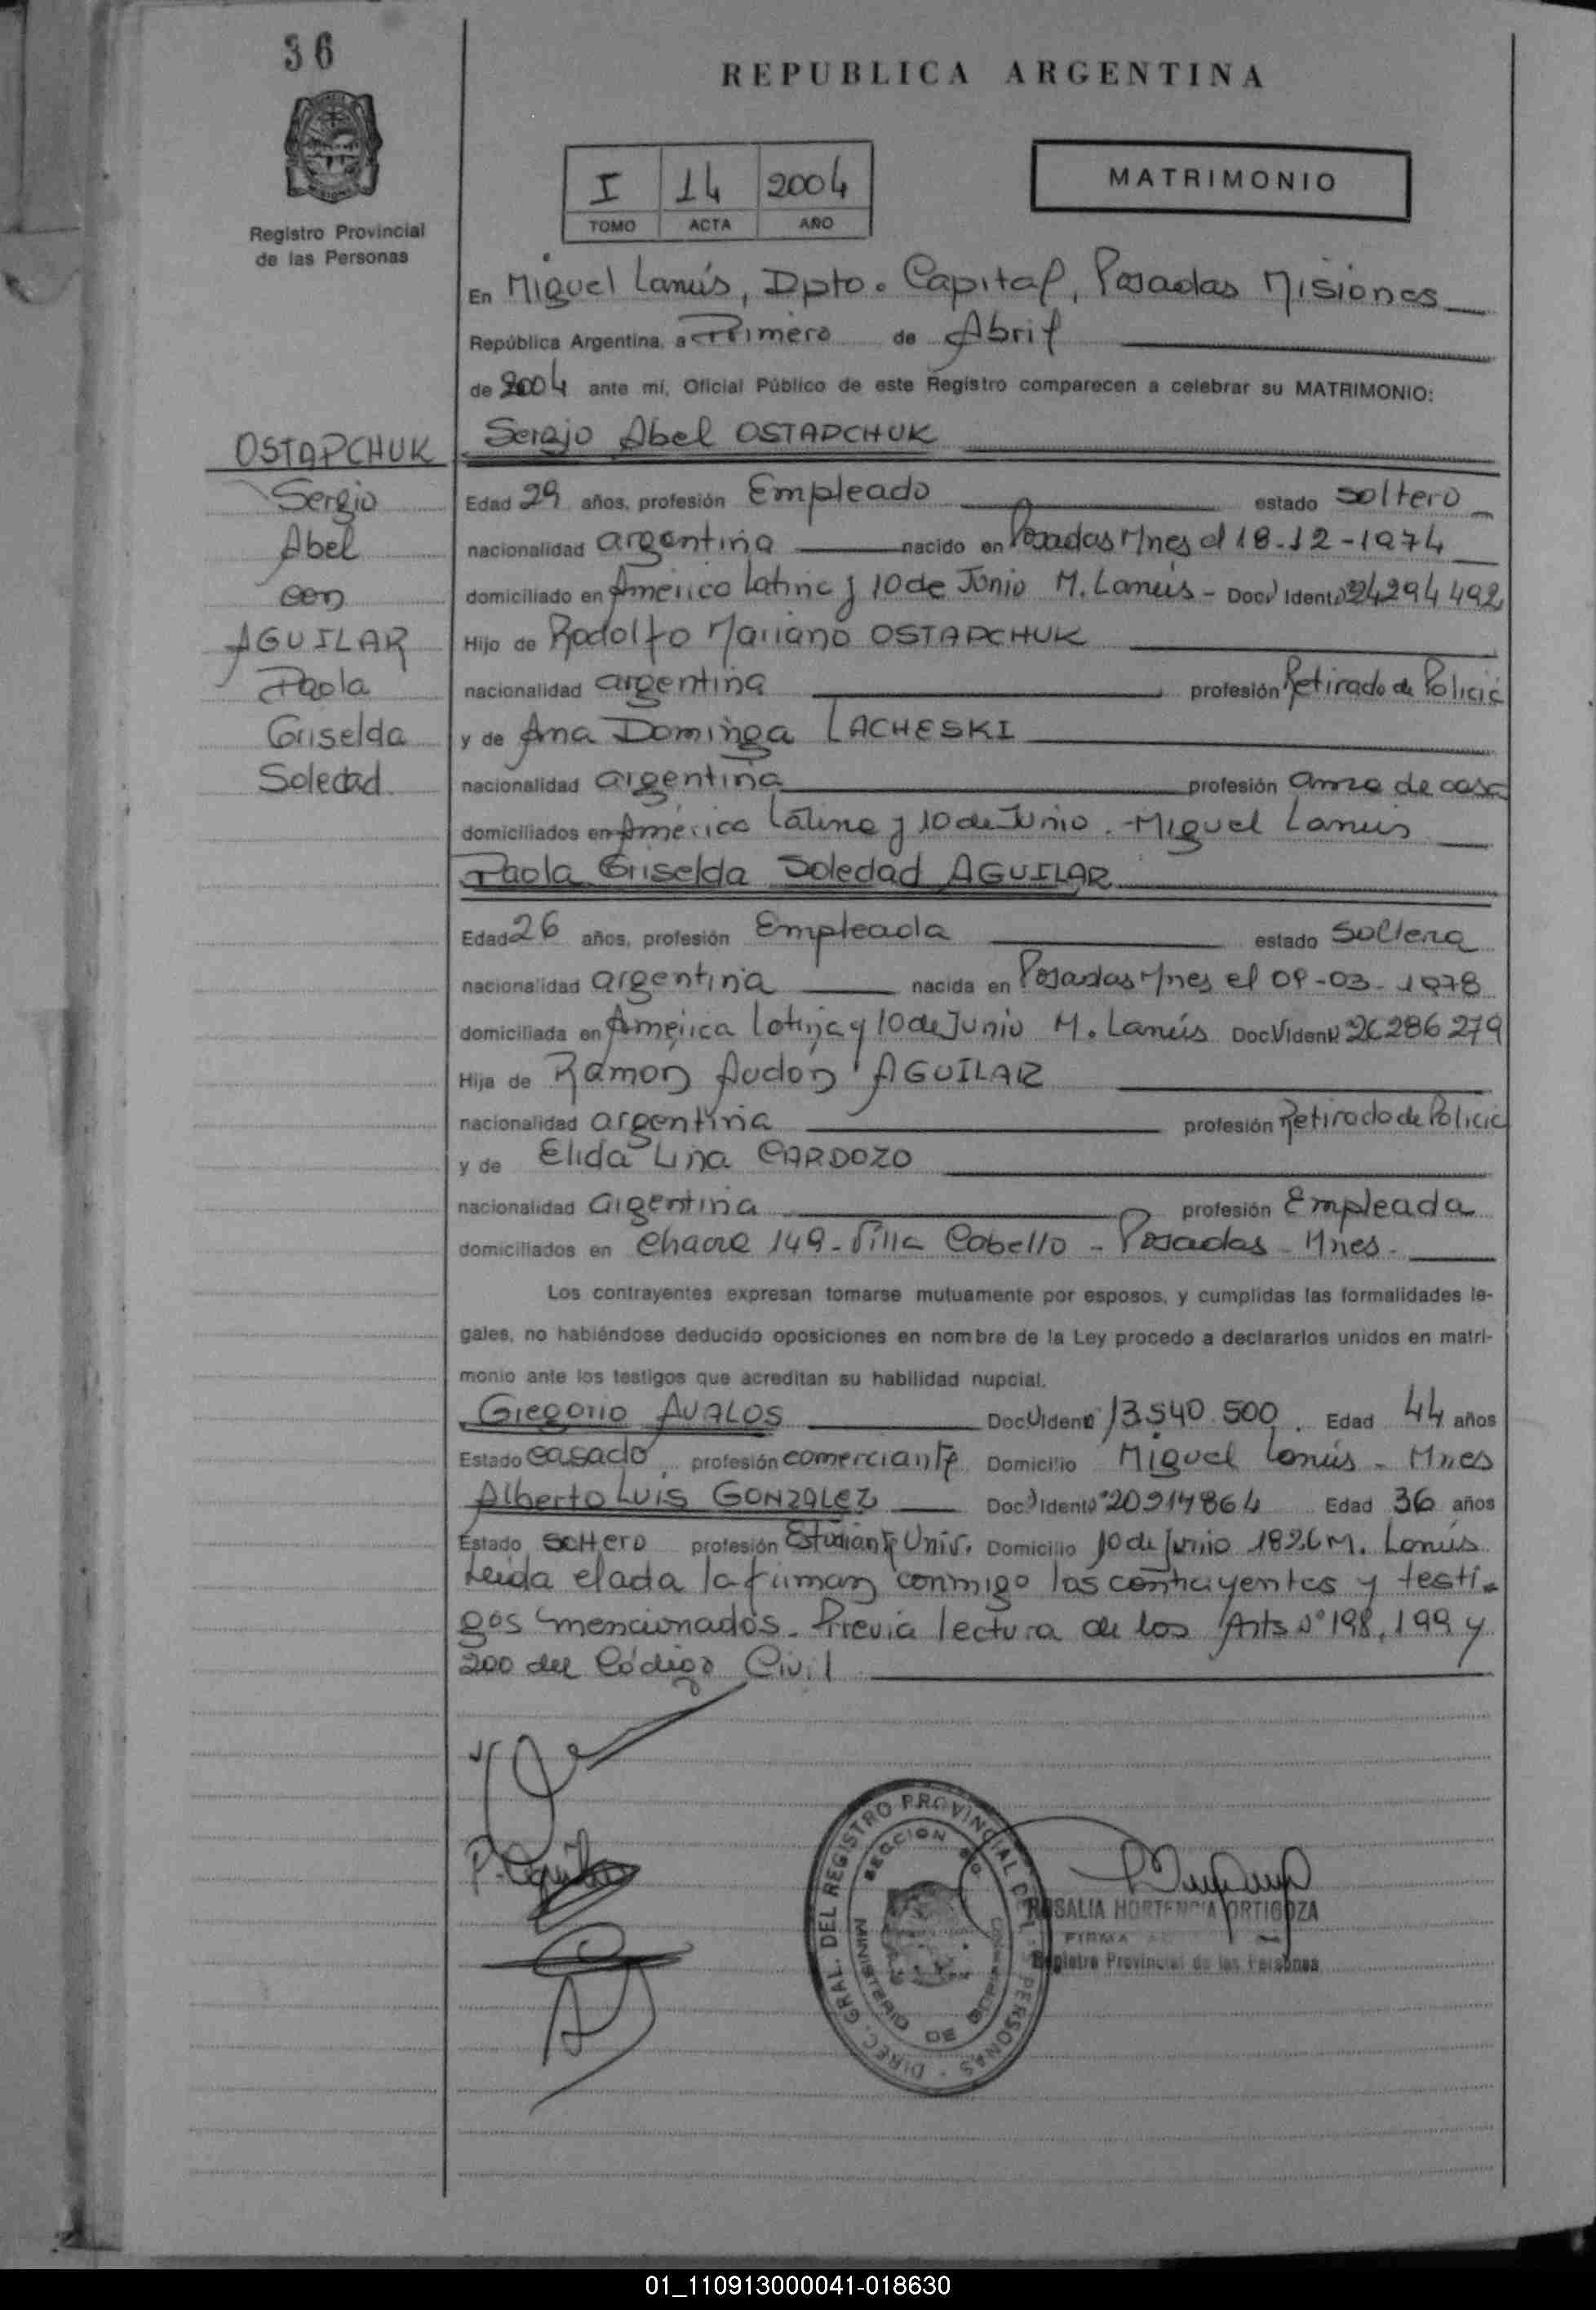 36
REPUBLICA ARGENTINA
I 14 2004
TOMO ACTA AÑO
MATRIMONIO
Registro Provincial
de las Personas
En Miguel Lanús, Dpto. Capital, Posadas Misiones
República Argentina, a Primero de Abril
de 2004 ante mí, Oficial Público de este Registro comparecen a celebrar su MATRIMONIO:
OSTAPCHUK
Sergio
Abel
con
AGUILAR
Paola
Griselda
Soledad
Sergio Abel OSTAPCHUK
Edad 29 años, profesión Empleado estado soltero
nacionalidad argentina nacido en Posadas Mnes el 18-12-1974
domiciliado en América Latina y 10 de Junio M. Lanús - Doc. Ident. 24294492
Hijo de Rodolfo Mariano OSTAPCHUK
nacionalidad argentina profesión Retirado de Policía
y de Ana Dominga LACHESKI
nacionalidad argentina profesión ama de casa
domiciliados en América Latina y 10 de Junio. - Miguel Lanús
Paola Griselda Soledad AGUILAR
Edad 26 años, profesión Empleada estado Soltera
nacionalidad argentina nacida en Posadas Mnes el 09-03-1978
domiciliada en América Latina y 10 de Junio M. Lanús Doc. Ident. 26286279
Hija de Ramon Audón AGUILAR
nacionalidad argentina profesión Retirado de Policía
y de Elida Lina CARDOZO
nacionalidad argentina profesión Empleada
domiciliados en Chacra 149 - Villa Cabello - Posadas - Mnes.
Los contrayentes expresan tomarse mutuamente por esposos, y cumplidas las formalidades le-
gales, no habiéndose deducido oposiciones en nombre de la Ley procedo a declararlos unidos en matri-
monio ante los testigos que acreditan su habilidad nupcial.
Gregorio AVALOS Doc. Ident. 13.540.500. Edad 44 años
Estado casado, profesión comerciante Domicilio Miguel Lanús - Mnes
Alberto Luis GONZALEZ Doc. Ident. 20914864 Edad 36 años
Estado soltero profesión Estudiante Univ. Domicilio 10 de Junio 1826 M. Lanús
Leida el acta la firman conmigo los contrayentes y testi-
gos mencionados. Previa lectura de los Arts Nº 198, 199 y
200 del Código Civil
P. Aguilar
DIREC. GRAL. DEL REGISTRO PROVINCIAL DE L PERSONAS
SECCION
MINISTERIO DE GOBIERNO
ROSALIA HORTENCIA ORTIGOZA
FIRMA
Registro Provincial de las Personas
01_110913000041-018630